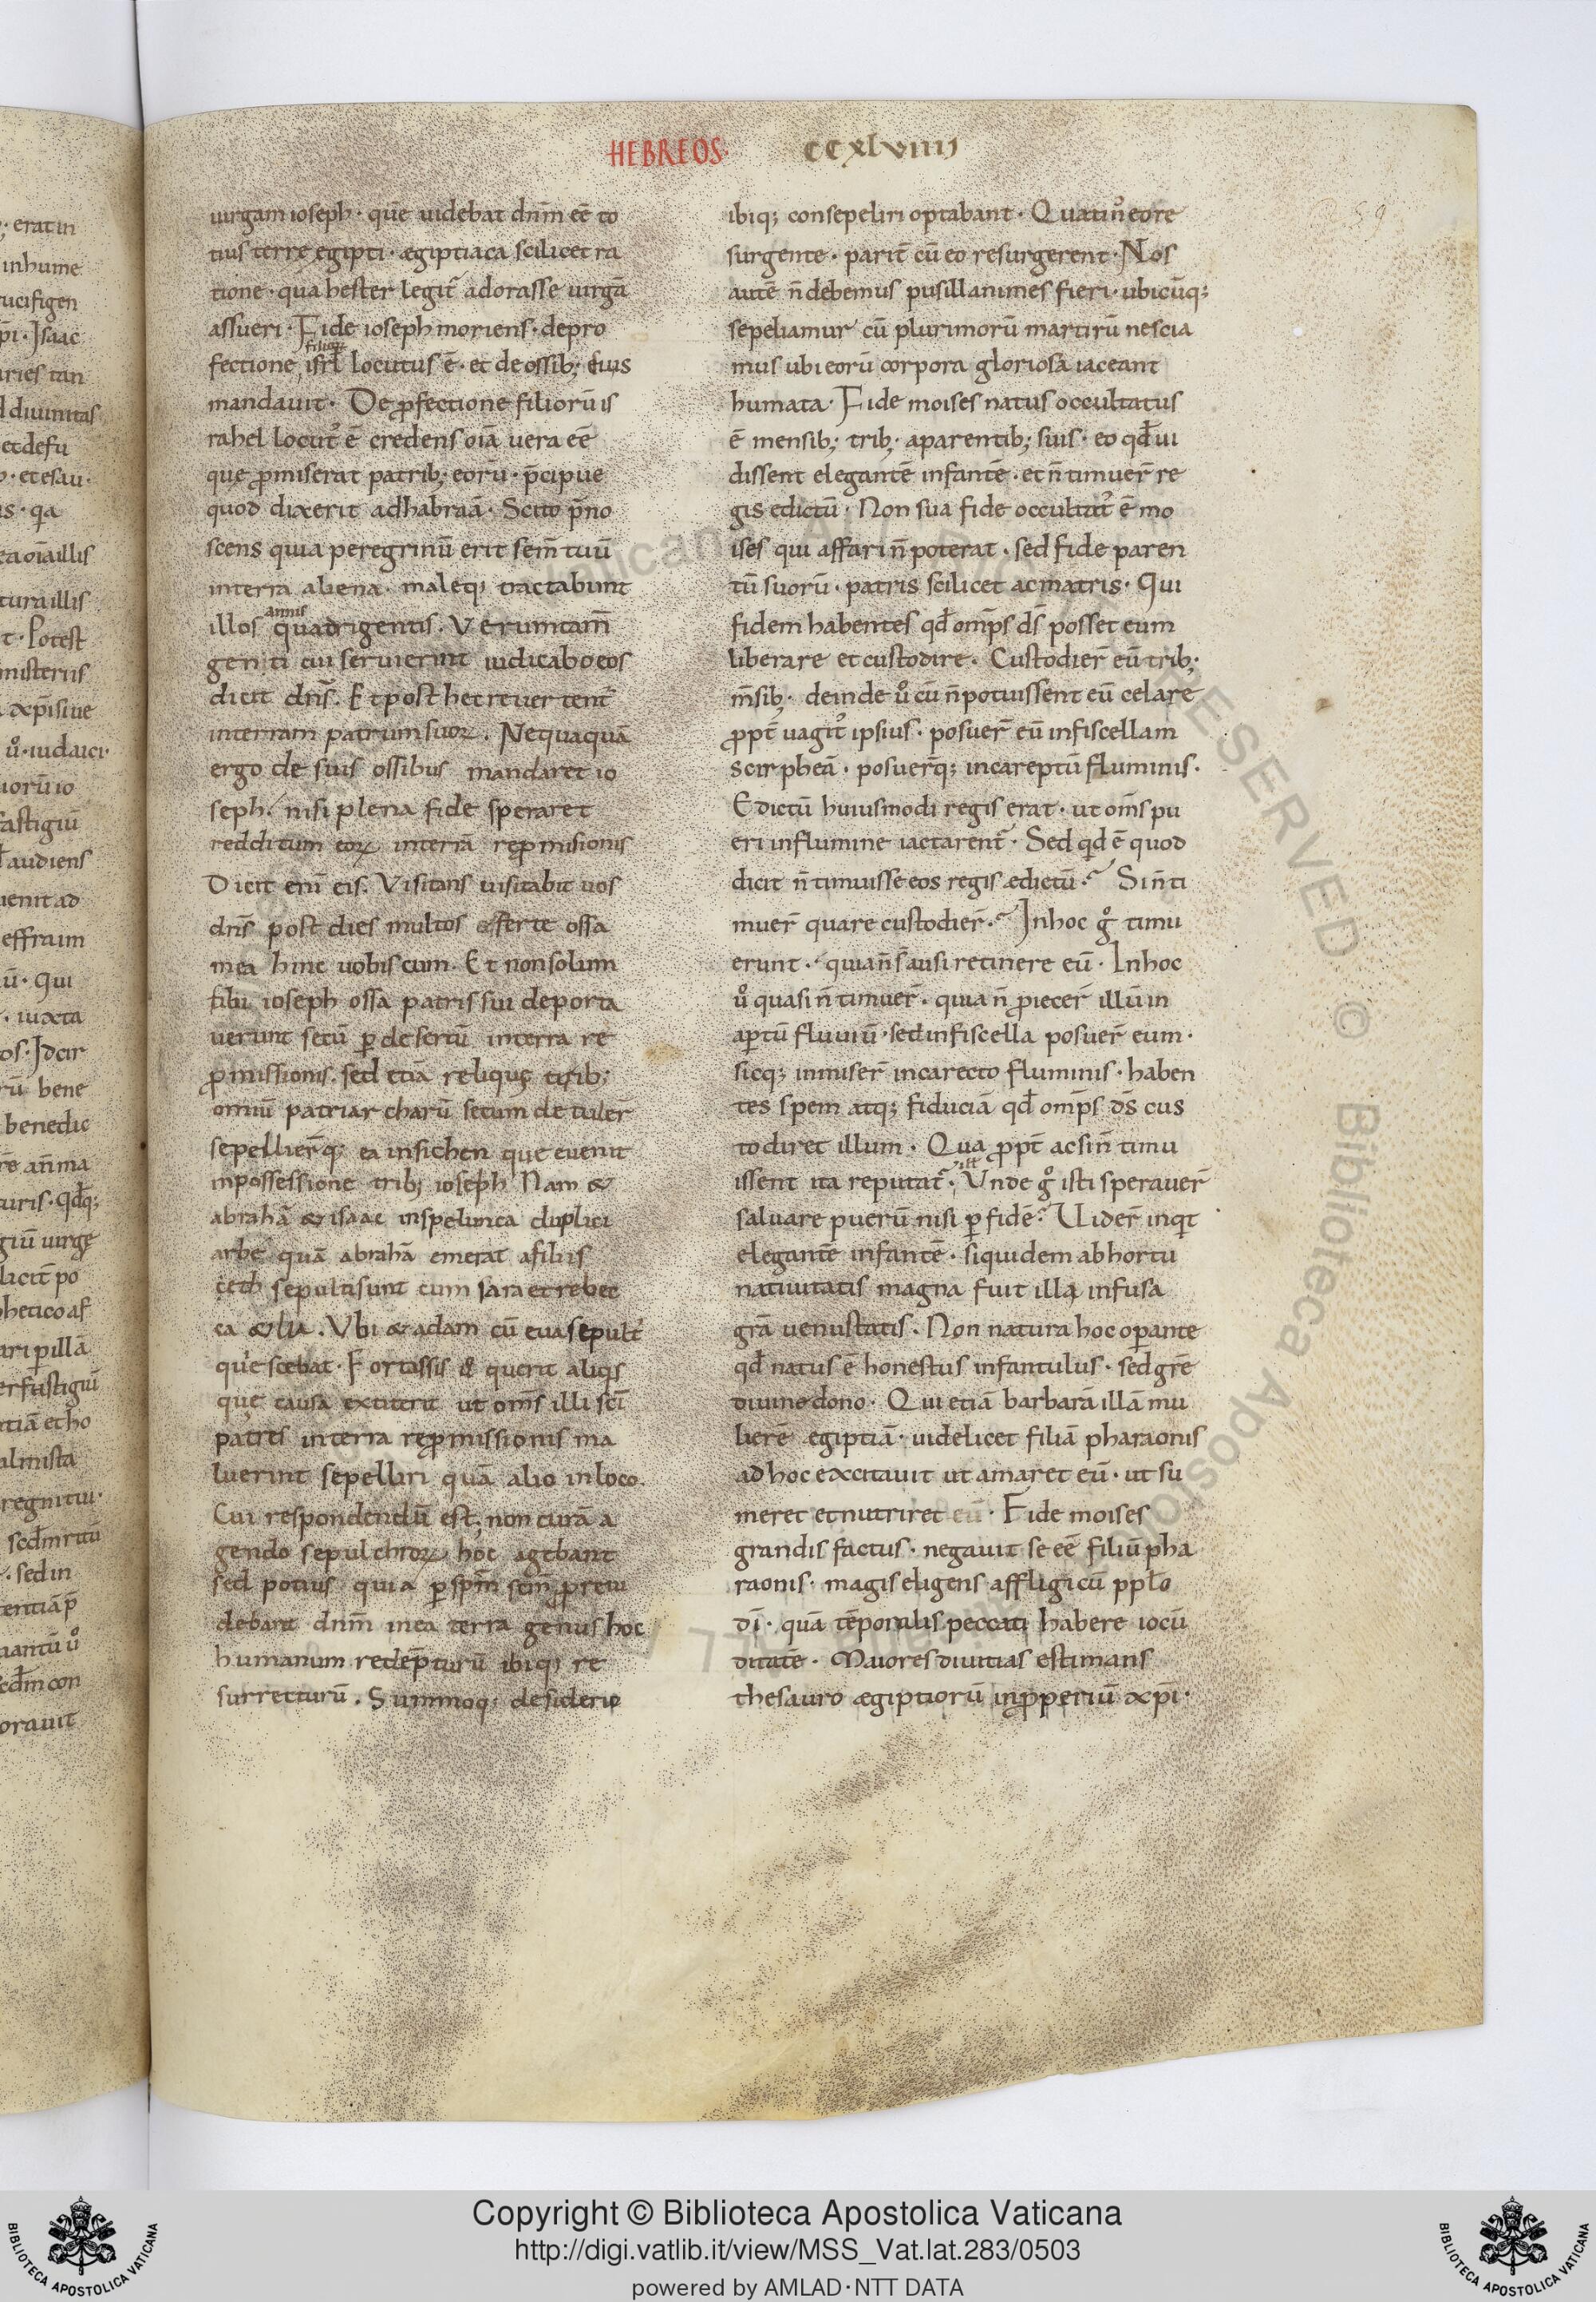 HEBREOS CCXLVIIII
uirgam ioseph · quē uidebat dn̄m eē to
tius terrę egipti · ægiptiaca scilicet ra
tione · qua hester legit̄ adorasse uirgā
assueri · Fide ioseph moriens · de pro
filiorꝝ
fectione isrl̄ locutus ē · et de ossib; suis
mandauit · De ꝓfectione filiorū is
rahel locutꝰ ē credens oīa uera eē
que ꝓmiserat patrib; eorū · p̄cipue
quod dixerit ad habraā · Scito p̄no
scens quia peregrinū erit sem̄ tuū
in terra aliena · maleq; tractabunt
annis
illos quadrigentis . Verumtam̄
gen ti cui seruierint iudicabo eos
dicit dn̄s . Et post hec reuer tent̄
in terram patrum suoꝝ . Nequaquā
ergo de suis ossibus mandaret io
seph · nisi plena fide speraret
redditum eoꝝ in terrā reꝓmisionis
Dicit eni eis . Visitans uisitabit uos
dn̄s post dies multos efferte ossa
mea hinc uobiscum . Et non solum
filii ioseph ossa patris sui deporta
uerunt secū ꝑ desertū in terra re
ꝓmissionis . sed etiā reliquę trib;
omniū patriarcharū secum detuler̄
sepellier̄q; ea in sichen que euenit
in possessione trib; ioseph Nam &
abrahā & isaac in spelunca duplici
arbe quā abrahā emerat a filiis
ceth sepulti sunt cum sara et rebec
ca & lia . Vbi & adam cū eua sepult̄
quieścebat · Fortassis querit aliqis
que causa extiterit ut om̄s illi sc̄i
patres in terra reꝓmissionis ma
luerint sepelliri quā alio in loco .
Cui respondendū est ; non curā a
gendo sepulchroꝝ hoc agebant
sed potius quia ꝑ sp̄m sc̄m ꝓreui
debant dn̄m in ea terra genus hoc
humanum redēpturū ibiq; re
surrecturū . Summoq; desiderio
ibiq; consepeliri optabant · Quatinꝰ eo re
surgente · parit̄ cū eo resurgerent · Nos
autē n̄ debemus pusillanimes fieri · ubicūq;
sepeliamur cū plurimorū martirū nescia
mus ubi eorū corpora gloriosa iaceant
humata · Fide moises natus occultatus
ē mensib; trib; a parentib; suis · eo qd̄ ui
dissent elegantē infantē · et n̄ timuer̄ re
gis edictū · Non sua fide occultatꝰ ē mo
ises qui affari n̄ poterat · sed fide paren
tū suorū · patris scilicet ac matris · Qui
fidem habentes qd̄ omp̄s d̄s posset eum
liberare et custodire · Custodier̄ eū trib;
m̄sib; · deinde ů cū n̄ potuissent eū celare
ꝓpt̄ uagitꝰ ipsius · posuer̄ eū in fiscellam
scirpheā · posuer̄q; in careptū fluminis ·
Edictū huiusmodi regis erat · ut om̄s pu
eri in flumine iactarent̄ · Sed qid ē quod
dicit n̄ timuisse eos regis ædictū · Si n̄ ti
muer̄ quare custodier̄ · In hoc g̊ timu
erunt · quia n̄ s̄ ausi retinere eū · In hoc
ů quasi n̄ timuer̄ · quia n̄ ꝓiecer̄ illū in
aꝑtū fluuiū · sed in fiscella posuer̄ eum ·
sicq; inmiser̄ in carecto fluminis · haben
tes spem atq; fiduciā qd̄ omp̄s d̄s cus
todiret illum · Qua ꝓpt̄ ac si n̄ timu
issent ita reputat̄ · Vnde g̊ isti sperauer̄
saluare puerū nisi ꝑ fidē · Uider̄ inqit
elegantē infantē · siquidem ab hortu
natiuitatis magna fuit illa infusa
gr̄a uenustatis · Non natura hoc oꝑante
qd̄ natus ē honestus infantulus · sed gr̄e
diuine dono · Qui etiā barbarā illā mu
lierē egiptiā · uidelicet filiā pharaonis
ad hoc excitauit ut amaret eū · ut su
meret et nutriret eū · Fide moises
grandis factus · negauit se eē filiū pha
raonis · magis eligens affligi cū pp̄lo
dī · quā tēporalis peccati habere iocū
ditatē · Maiores diuitias estimans
thesauro ægiptiorū inꝓperiū xp̄i ·
Copyright © Biblioteca Apostolica Vaticana
http://digi.vatlib.it/view/MSS_Vat.lat.283/0503
powered by AMLAD·NTT DATA
BIBLIOTECA APOSTOLICA VATICANA
BIBLIOTECA APOSTOLICA VATICANA